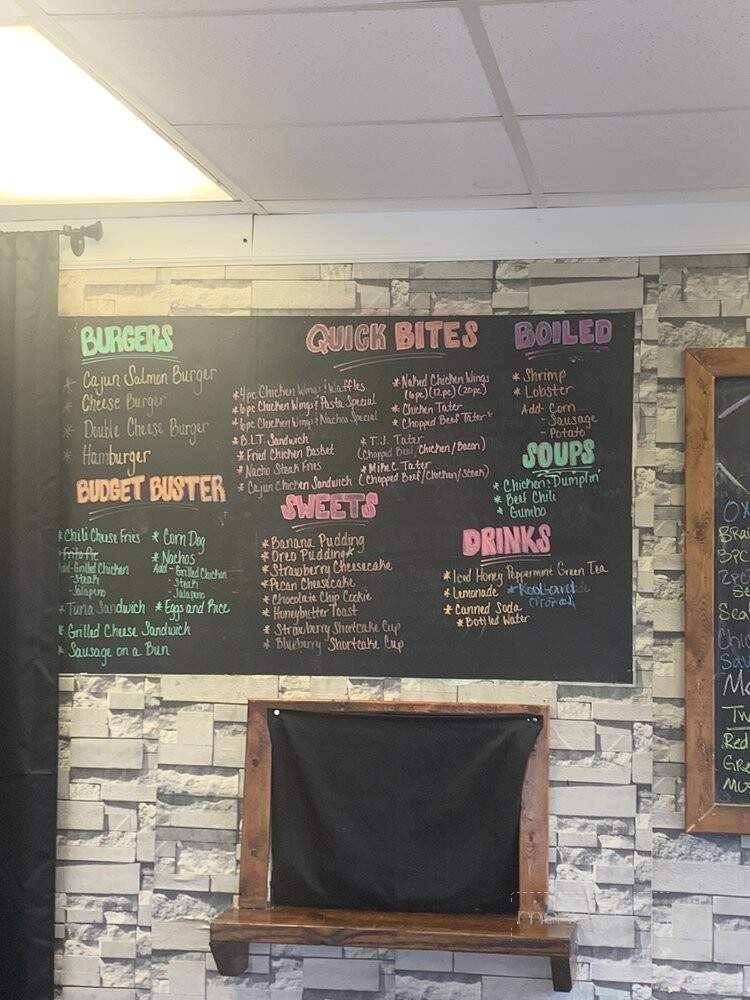 BURGERS
* Cajun Salmon Burger
* Cheese Burger
* Double Cheese Burger
* Hamburger
BUDGET BUSTER
* Chili Cheese Fries
* Frito Pie
Add-Grilled Chicken
- Steak
- Jalapeno
* Tuna Sandwich
* Grilled Cheese Sandwich
* Sausage on a Bun
* Corn Dog
* Nachos
Add- Grilled Chicken
- Steak
- Jalapeno
* Eggs and Rice
QUICK BITES
* 4pc Chicken Wings & Waffles
* 6pc Chicken Wings & Pasta Special
* 6pc Chicken Wings & Nachos Special
* B.L.T. Sandwich
* Fried Chicken Basket
* Nacho Steak Fries
* Cajun Chicken Sandwich
* Naked Chicken Wings
(6pc) (12pc) (20pc)
* Chicken Tater
* Chopped Beef Tater
* T.J. Tater
(Chopped Beef/Chicken/Bacon)
* Mike C. Tater
(Chopped Beef/Chicken/Steak)
SWEETS
* Banana Pudding
* Oreo Pudding
* Strawberry Cheesecake
* Pecan Cheesecake
* Chocolate Chip Cookie
* Honeybutter Toast
* Strawberry Shortcake Cup
* Blueberry Shortcake Cup
BOILED
* Shrimp
* Lobster
Add- Corn
- Sausage
- Potato
SOUPS
* Chicken & Dumplin'
* Beef Chili
* Gumbo
DRINKS
* Iced Honey Peppermint Green Tea
* Lemonade * Kool-aid
(Tropical)
* Canned Soda
* Bottled Water
3pc
2pc
Red